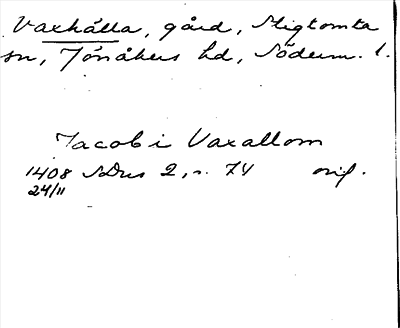 Vaxhälla, gård, Stigtomta
sn, Jönåkers hd, Söderm. l.
Jacob i Vaxallom
1408 SDns 2, s. 74 orig.
24/11